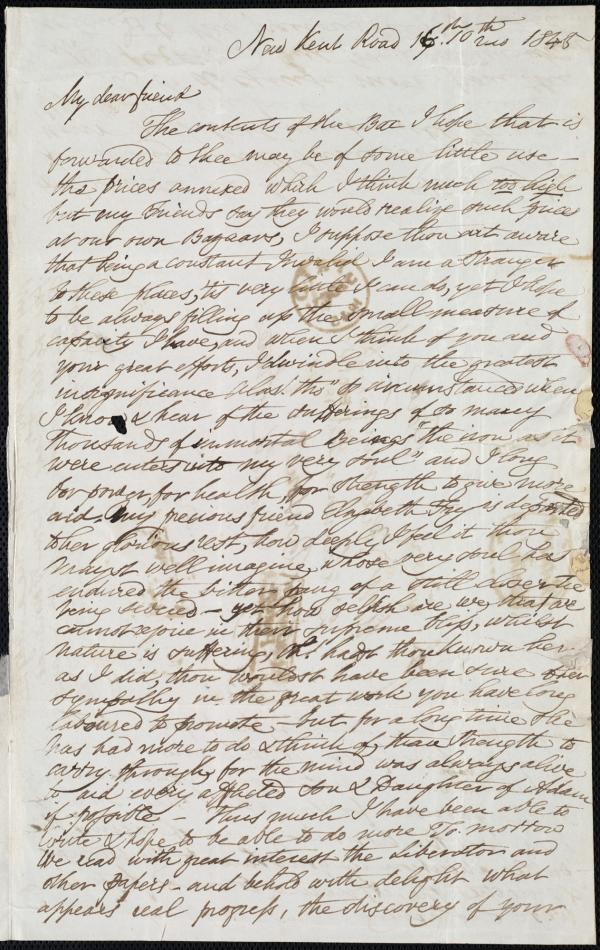 New Kent Road 16th 10th mo 1845
My dear friend
The contents of the Box I hope that is
forwarded to thee may be of some little use —
the prices annexed which I think much too high
but my Friends say they would realize such prices
at our own Bazaars, I suppose thou art aware
that being a constant Invalid I am a stranger
to these places, 'tis very little I can do, yet I hope
to be always filling up the small measure of
capacity I have, and when I think of you and
your great efforts, I dwindle into the greatest
insignificance alas! tho' so circumstanced when
I know & hear of the sufferings of so many
thousands of immortal Beings "the iron as it
were enters into my very soul" and I long
for power, for health, for strength to give more
aid. My precious friend Elizabeth Fry is departed
to her glorious rest, how deeply I feel it thou
mayest well imagine, whose very soul has
endured the bitter pang of a still closer tie
being severed — yet how selfish are we, that we
cannot rejoice in their supreme bliss, whilst
nature is suffering, Oh! hadst thou known her
as I did, thou wouldst have been sure of her
sympathy in the great work you have long
laboured to promote — but for a long time she
has had more to do & think of, than strength to
carry through, for the mind was always alive
to aid every afflicted Son & Daughter of Adam
if possible — Thus much I have been able to
write & hope to be able to do more To-morrow
We read with great interest the Liberator and
other papers — and behold with delight what
appears real progress, the discovery of your